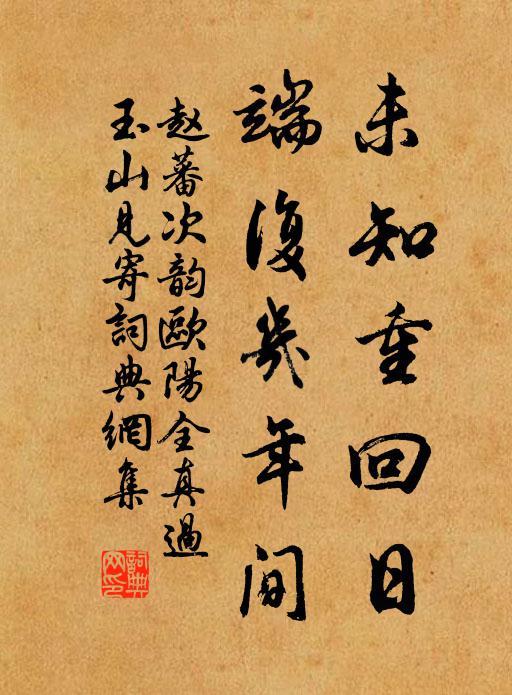 未知重回日
端復幾年间
赵蕃次韵歐陽全真過
玉山見寄詞典網集
詞典
网印